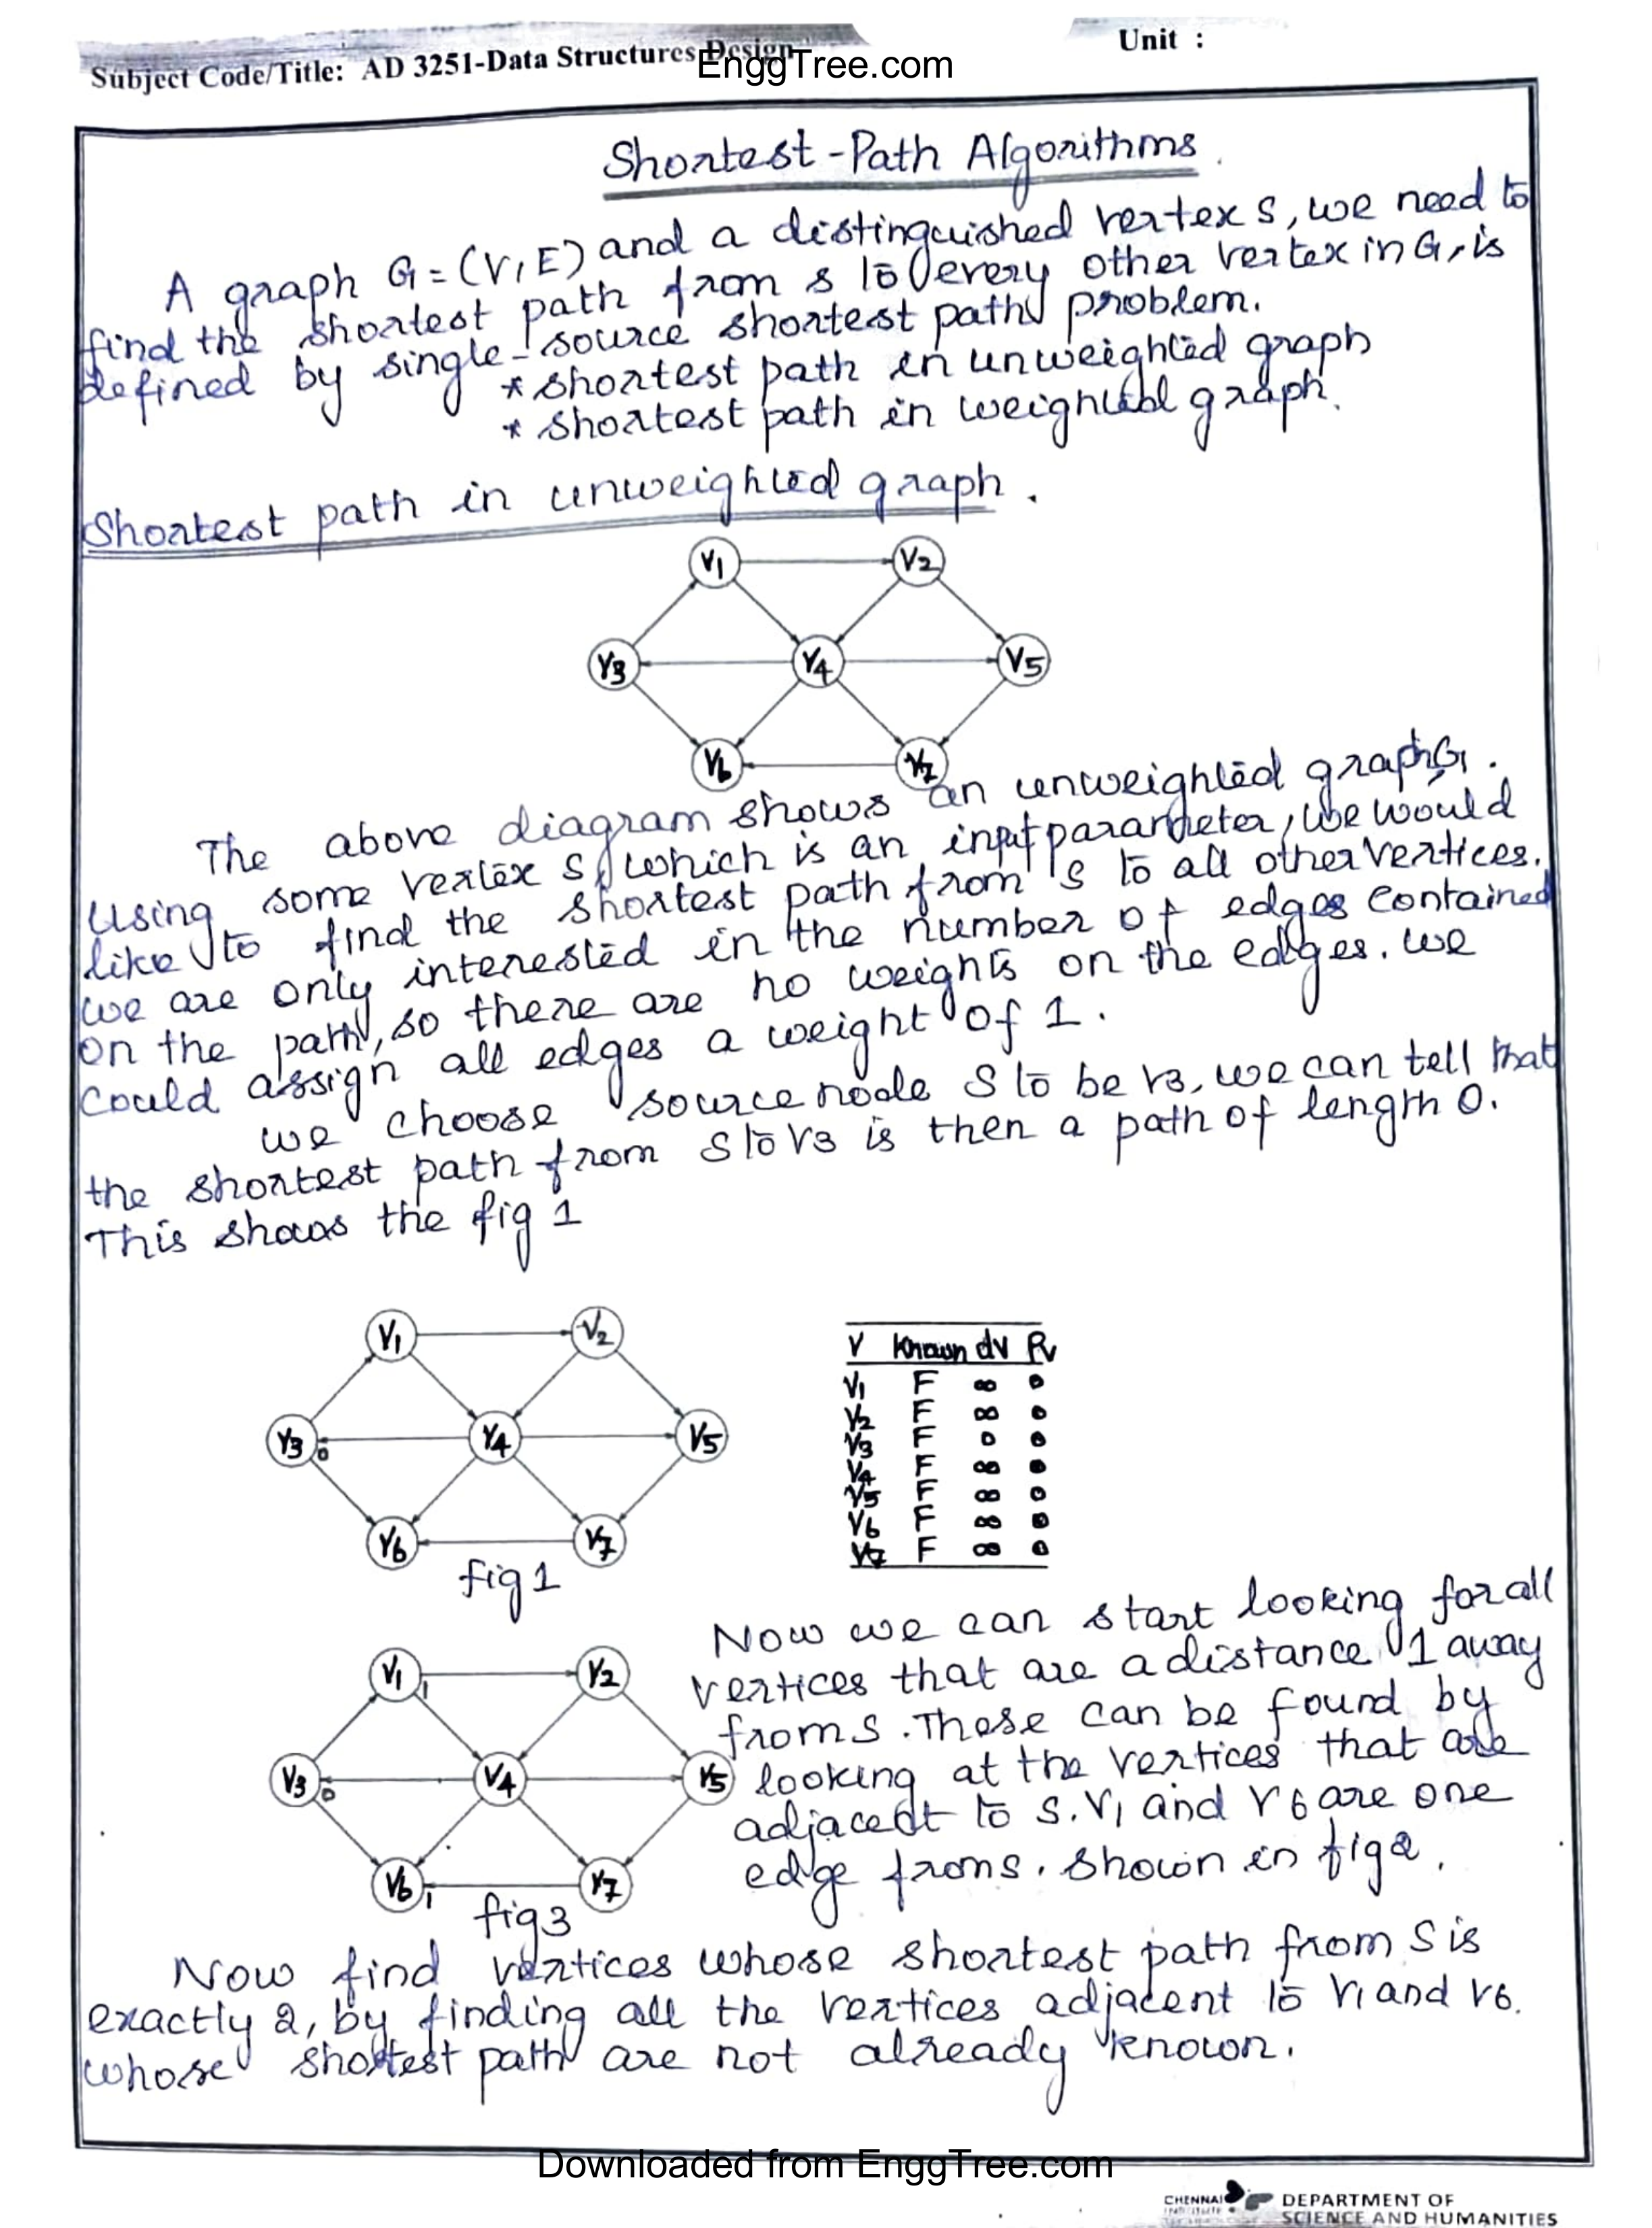 Subject Code/Title: AD 3251-Data Structures Design
EnggTree.com
Unit :
Shortest-Path Algorithms.
A graph G=(V,E) and a distinguished vertex s, we need to
find the shortest path from s to every other vertex in G, is
defined by single-source shortest path problem.
* shortest path in unweighted graph
* shortest path in weighted graph.
Shortest path in unweighted graph.
V1 V2
V3 V4 V5
V6 V7
The above diagram shows an unweighted graph, G.
Using some vertex S, which is an input parameter, we would
like to find the shortest path from s to all other vertices.
we are only interested in the number of edges contained
on the path, so there are no weights on the edges. we
could assign all edges a weight of 1.
we choose source node S to be v3, we can tell that
the shortest path from S to V3 is then a path of length 0.
This shows the fig 1
V1 V2
V3 0 V4 V5
V6 V7
fig 1
V Known dv Pv
V1 F ∞ 0
V2 F ∞ 0
V3 F 0 0
V4 F ∞ 0
V5 F ∞ 0
V6 F ∞ 0
V7 F ∞ 0
Now we can start looking for all
vertices that are a distance 1 away
from S. These can be found by
looking at the vertices that are
adjacent to S. V1 and V6 are one
edge from s. shown in fig 2.
V1 1 V2
V3 0 V4 V5
V6 1 V7
fig 3
Now find vertices whose shortest path from S is
exactly 2, by finding all the vertices adjacent to V1 and V6.
whose shortest path are not already known.
Downloaded from EnggTree.com
CHENNAI
DEPARTMENT OF
SCIENCE AND HUMANITIES